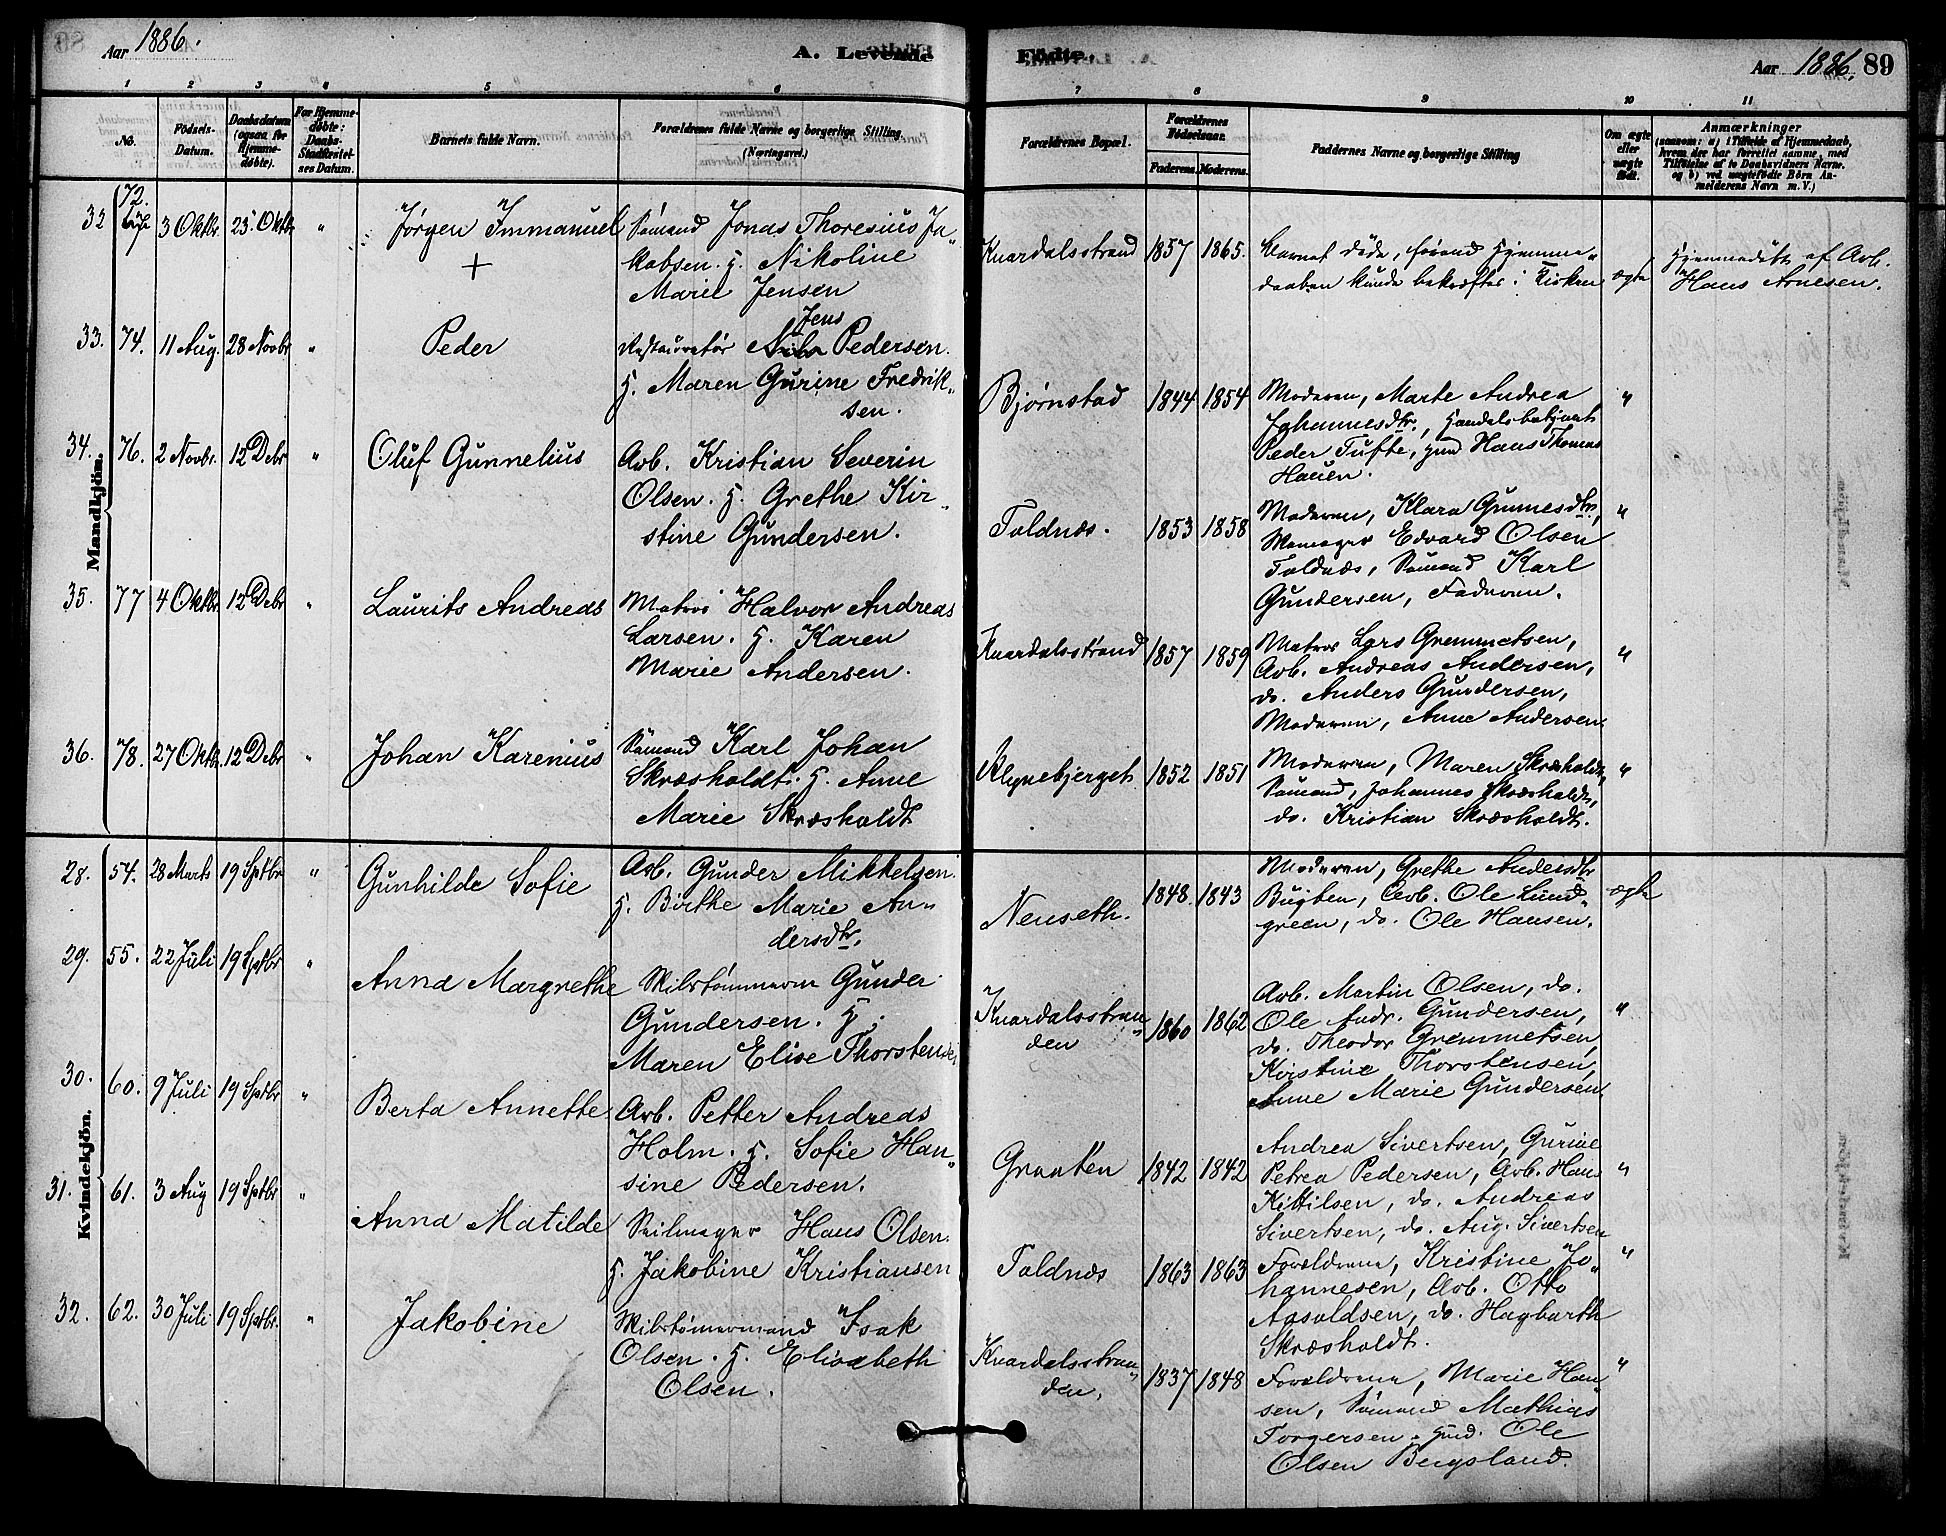 Aar 1886.
A. Levende
Födte.
Aar 1886. 89
1 2 3 4 5 6 7 8 9 10 11
No.
Födsels-Datum.
Daabsdatum (ogsaa for Hjemme-døbte).
For Hjemme-døbte: Daabs-Stadfæstel-ses Datum.
Barnets fulde Navn.
Forældrenes fulde Navne og borgerlige Stilling. (Næringsvei.)
Forældrenes Bopæl.
Forældrenes Födselsaar.
Faderens. Moderens.
Faddernes Navne og borgerlige Stilling
Om ægte eller uægte födt.
Anmærkninger
(saasom: a) i Tilfælde af Hjemmedaab,
hvem der har forrettet samme, med
Tilföielse af to Daabsvidners Navne.
og b) ved uægtefödte Börn An-
melderens Navn m. V.)
Mandkjön.
32 72. 3 Oktbr. 23 Oktb " Jørgen Immanuel +
Sømand Jonas Thoresius Ja-
kobsen. H. Nikoline
Marie Jensen
Knardalsstrand 1857 1865.
Barnet døde, førend Hjemme-
daaben kunde bekræftes i Kirken
ægte
Hjemmedøbt af Arb.
Hans Arnesen.
33. 74. 11 Aug. 28 Novbr " Peder
Restauratør Jens Pedersen.
H. Maren Gurine Fredrik-
sen.
Bjørnstad 1844 1854
Moderen, Marte Andrea
Johannesdtr., Handelsbetjent
Peder Tufte, Gmd Hans Thomas
Hauen.
"
34. 76. 2 Novbr. 12 Debr " Oluf Gunnelius
Arb. Kristian Severin
Olsen. H. Grethe Kir-
stine Gundersen.
Toldnæs. 1853 1858
Moderen, Klara Gunnesdtr,
Oluf Edvard Olsen
Toldnæs, Sømand Karl
Gundersen, Faderen.
"
35. 77 4 Oktbr 12 Debr " Laurits Andreas
Matros Halvor Andreas
Larsen. H. Karen
Marie Andersen.
Knardalsstrand 1857 1859
Matros Lars Gremmetsen,
Arb. Andreas Andersen,
do. Anders Gundersen,
Moderen, Anne Andersen.
"
36. 78. 27 Oktbr. 12 Debr " Johan Karenius
Sømand Karl Johan
Skræsholdt. H. Anne
Marie Skræsholdt
Klynebjerget 1852 1851
Moderen, Maren Skræsholdt,
Sømand, Johannes Skræsholdt,
do. Kristian Skræsholdt.
"
Kvindekjön.
28. 54. 28 Marts 19 Septbr " Gunhilde Sofie
Arb. Gunder Mikkelsen.
H. Birthe Marie An-
dersdtr.
Nenseth. 1848. 1843
Moderen, Grethe Andersdtr
Bugten, Arb. Ole Lund-
green, do. Ole Hansen.
ægte
29. 55. 22 Juli 19 Septbr " Anna Margrethe
Skibstømmerm Gunder
Gundersen. H.
Maren Elise Thorstensen
Knardalsstran-
den 1860 1862
Arb. Martin Olsen, do.
Ole Andr. Gundersen,
do. Theodor Gremmetsen,
Kristine Thorstensen,
Anne Marie Gundersen.
"
30. 60. 9 Juli 19 Septbr " Berta Annette
Arb. Petter Andreas
Holm. H. Sofie Han-
sine Pedersen.
Graaten 1842 1842
Andrea Sivertsen, Gurine
Petrea Pedersen, Arb. Hans
Kittilsen, do. Andreas
Sivertsen, do. Aug. Sivertsen
"
31. 61. 3 Aug 19 Septbr " Anna Matilde
Seilmager Hans Olsen.
H. Jakobine Kristiansen
Toldnæs 1863 1863
Forældrene, Kristine Jo-
hannesen, Arb. Otto
Aasoldsen, do. Hagbarth
Skræsholdt.
"
32. 62. 30 Juli 19 Septbr. " Jakobine
Skibstømmermand Isak
Olsen. H. Elisabeth
Olsen.
Knardalsstran-
den. 1837 1848
Forældrene, Marie Han-
sen, Sømand Mathias
Torgersen, Gmd. Ole
Olsen Bergsland.
"